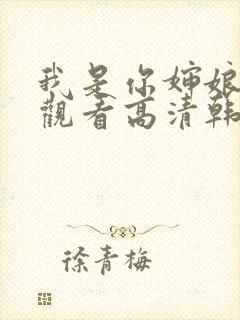 我是你婶娘
觀看高清韩
徐青梅